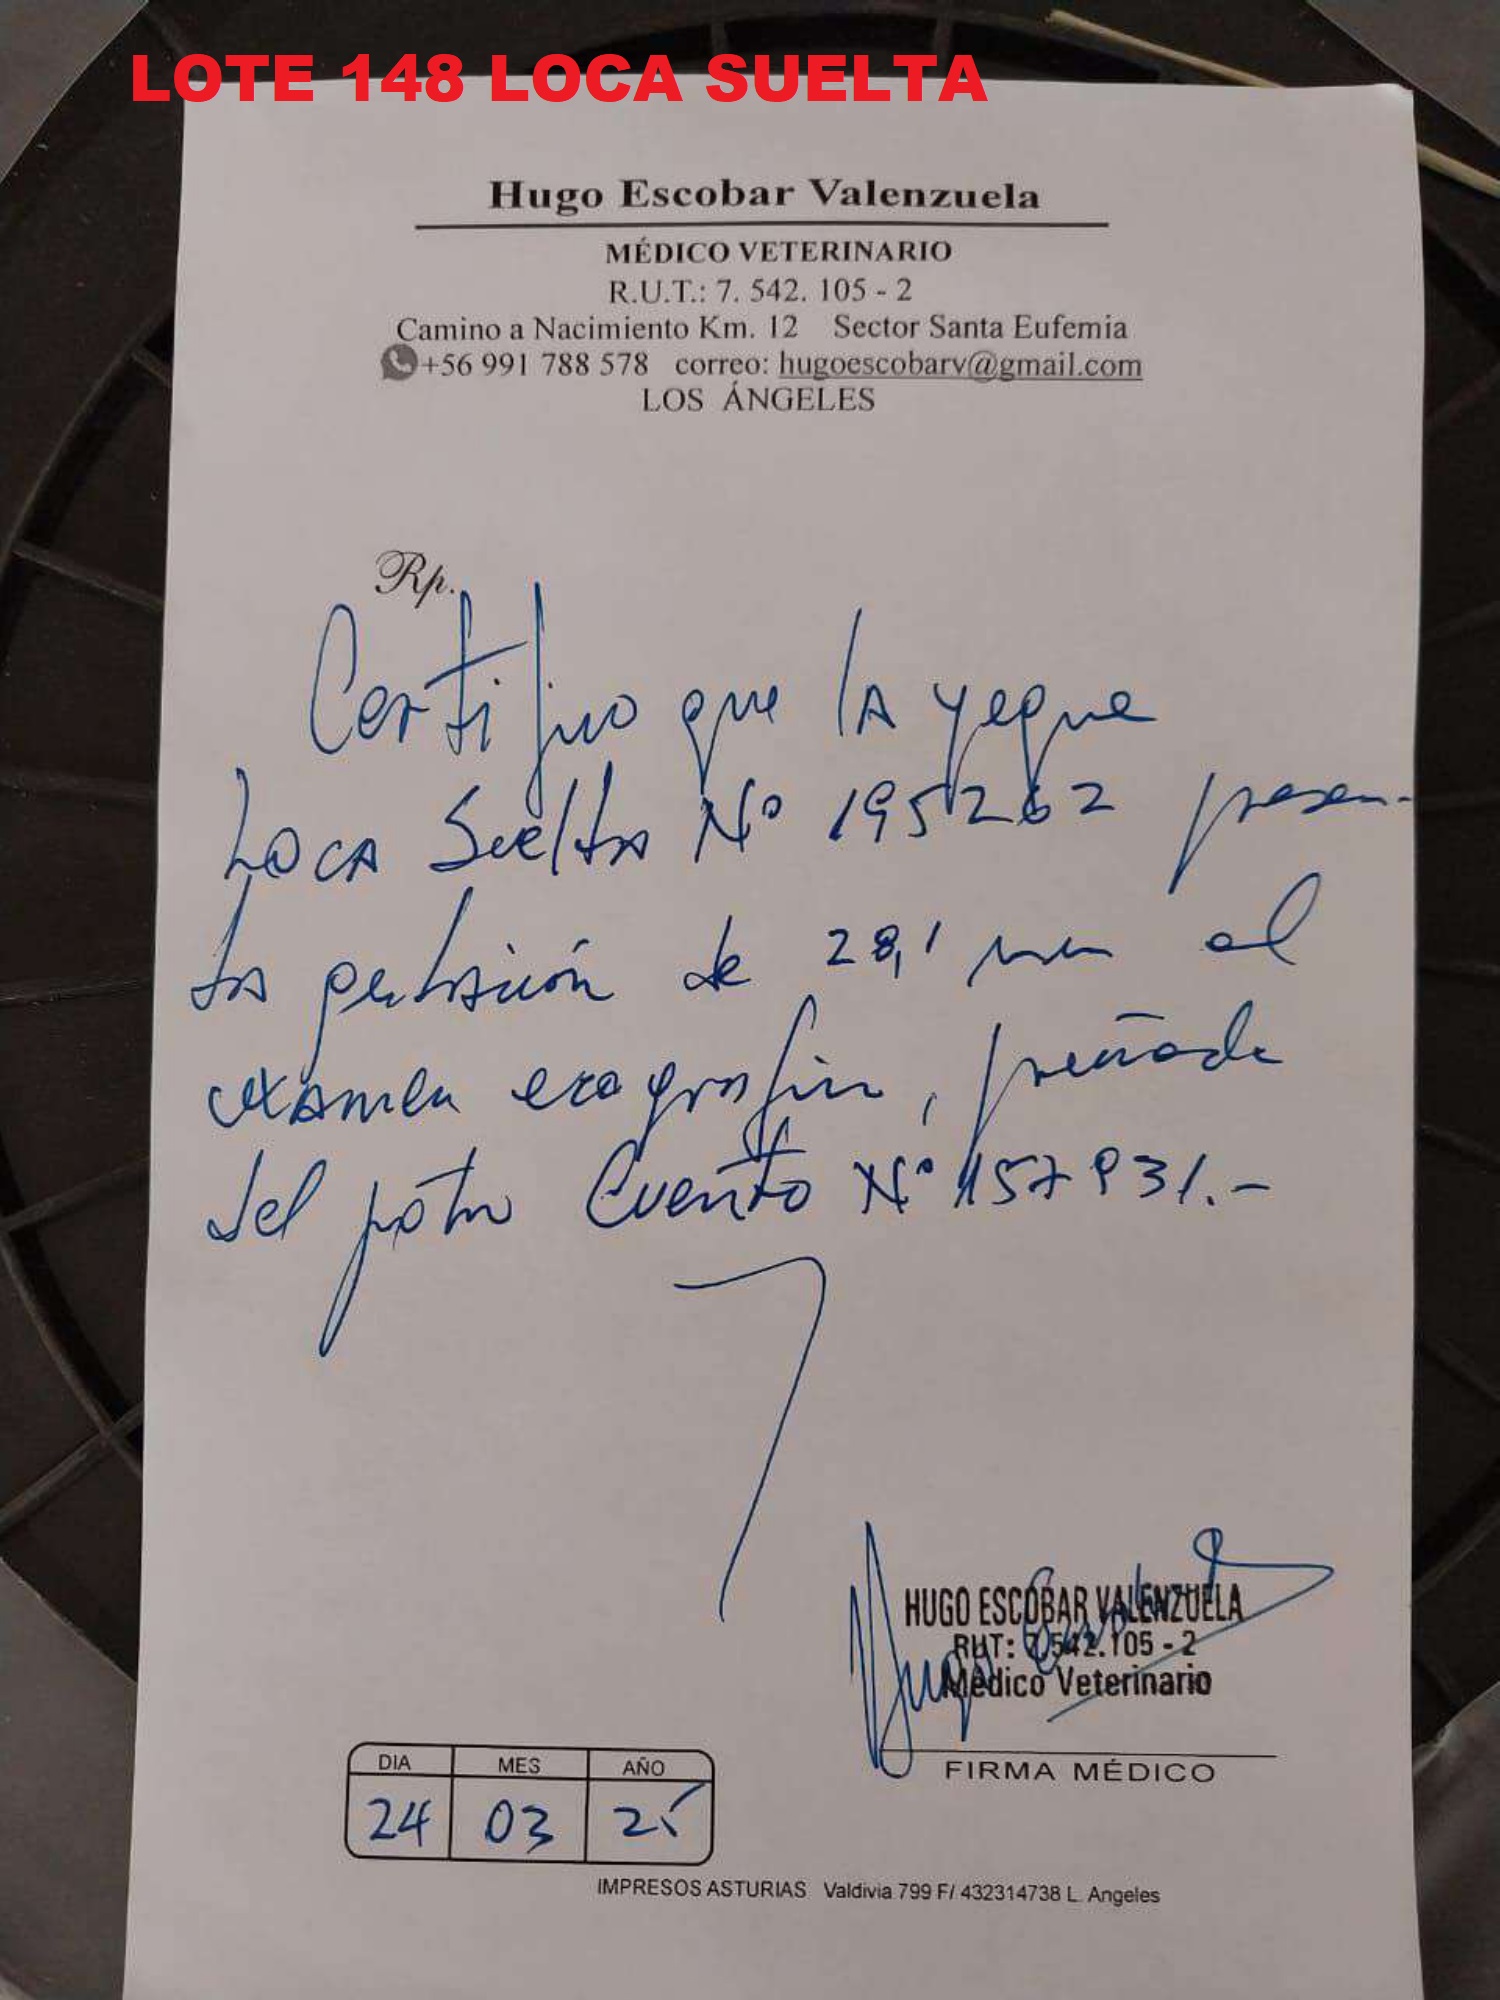 LOTE 148 LOCA SUELTA
Hugo Escobar Valenzuela
MÉDICO VETERINARIO
R.U.T.: 7. 542. 105 - 2
Camino a Nacimiento Km. 12 Sector Santa Eufemia
+56 991 788 578 correo: hugoescobarv@gmail.com
LOS ÁNGELES
Rp.
Certifico que la yegua
Loca Suelta Nº 195262 presen-
ta gestación de 28,1 mm al
examen ecografico, preñada
del potro Cuento Nº 157931.-
HUGO ESCOBAR VALENZUELA
RUT: 7.542.105 - 2
Médico Veterinario
FIRMA MÉDICO
DIA MES AÑO
24 03 25
IMPRESOS ASTURIAS Valdivia 799 F/ 432314738 L. Angeles